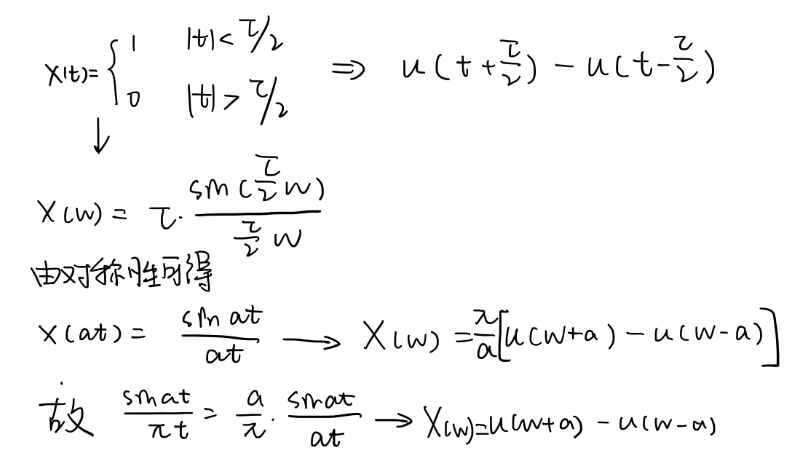 x(t)= { 1 |t|<τ/2 ⇒ u(t+τ/2) - u(t-τ/2)
0 |t|>τ/2
↓
X(w) = τ· sin(τ/2 w) / (τ/2 w)
由对称性可得
x(at) = sin at / at → X(w) = π/a [u(w+a) - u(w-a)]
故 sin at / πt = a/π · sin at / at → X(w)=u(w+a) - u(w-a)